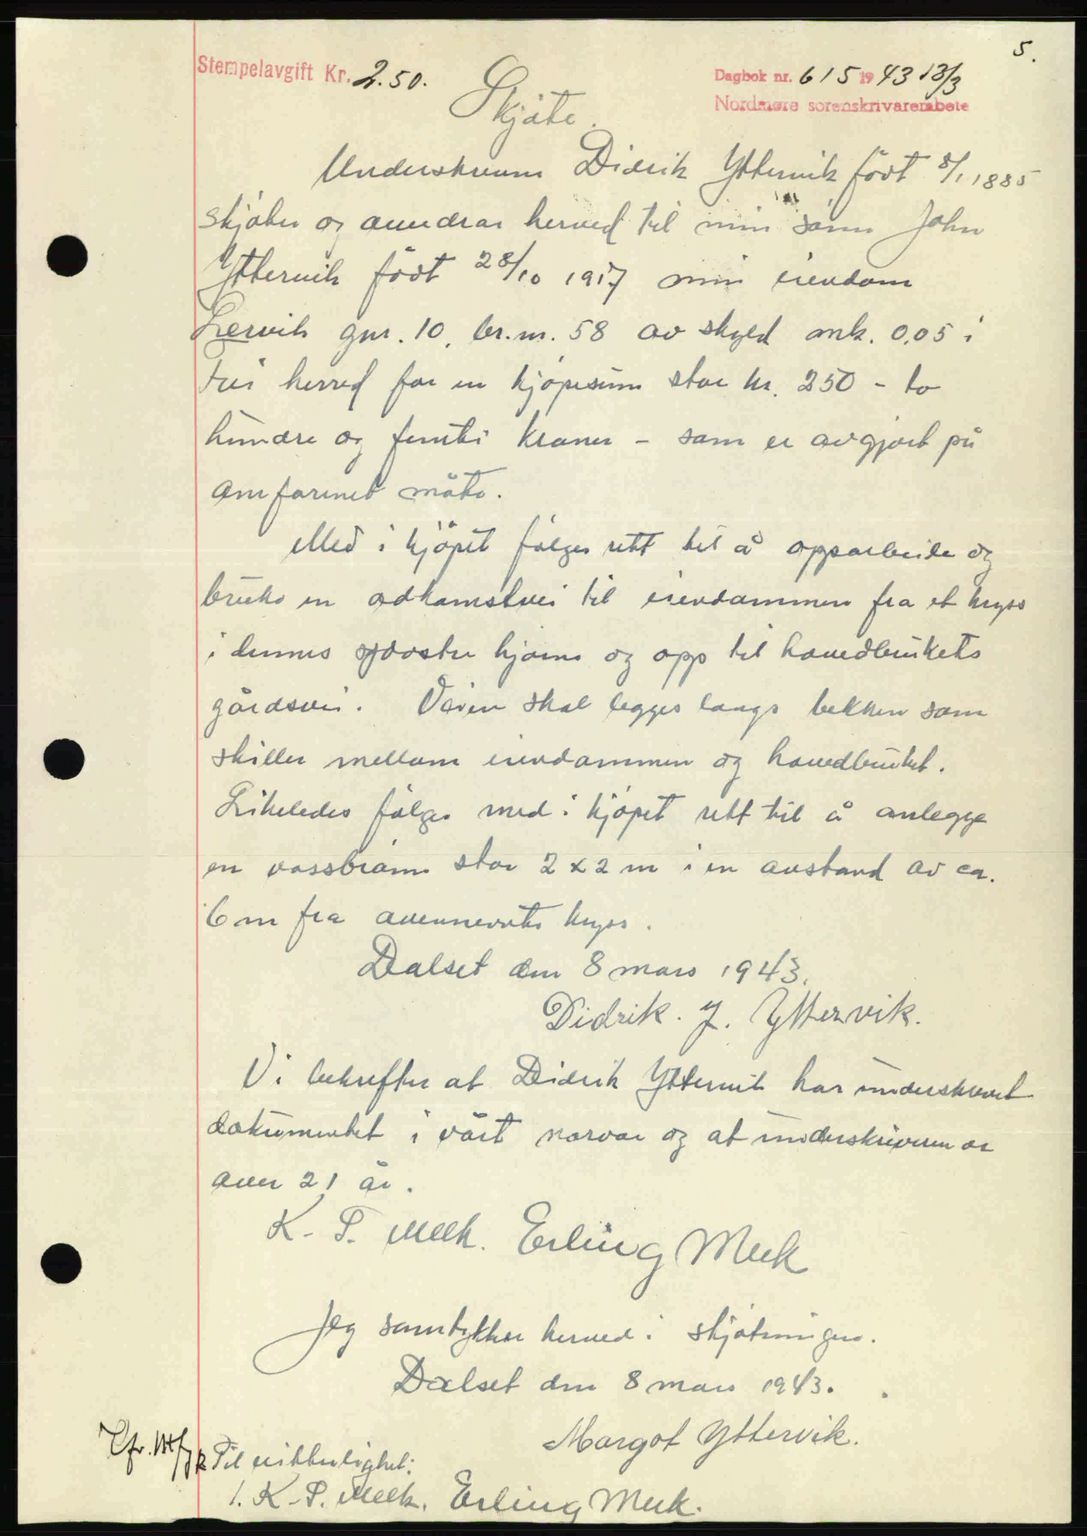 5.
Stempelavgift Kr. 2.50.
Dagbok nr. 615 1943 13/3
Nordmøre sorenskrivarembete
Skjöte.
Underskreven Didrik Yttervik födt 8/1 1885
skjöter og avendrar herved til min sönn John
Yttervik födt 28/10 1917 min eiendom
Lervik gnr. 10, br.nr. 58 av skyld mk. 0,05 i
herred for en kjöpesum stor kr. 250 - to
hundre og femti kroner - som er avgjort på
omforenet måte.
Med i kjöpet fölger rett til å opparbeide og
bruke en adkomstvei til eiendommen fra et kryss
i dennes hjörne og opp til hovedbrukets
gårdsvei. Veien skal legges langs bekken som
skiller mellom eiendommen og hovedbruket.
Likeledes fölger med i kjöpet rett til å anlegge
en vassbrönn stor 2 x 2 m i en avstand av ca.
6 m fra ovennevnte kryss.
Dalset den 8 mars 1943.
Didrik. J. Yttervik.
Vi bekrefter at Didrik Yttervik har underskrevet
dokumentet i vårt nærvær og at underskriveren er
over 21 år.
K. P. Meek. Erling Meek
Jeg samtykker herved i skjötningen.
Dalset den 8 mars 1943.
Margot Yttervik.
Til vitterlighet:
1. K. P. Meek. Erling Meek.